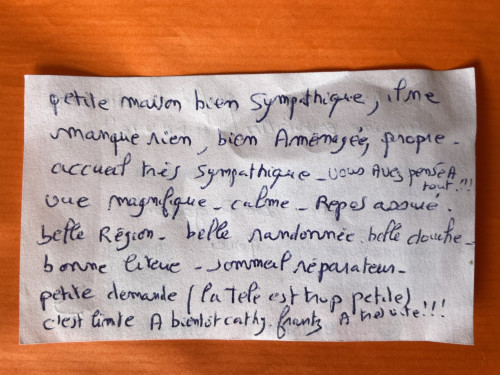 petite maison bien sympathique, il ne
manque rien, bien Aménagée, propre -
accueil très sympathique - vous Avez pensé A
tout !!!
vue magnifique - calme - Repos assuré.
belle Région - belle randonnée. belle douche -
bonne literie - sommeil réparateur -
petite demande (la télé est trop petite)
c'est limite A bientôt cathy. frantz A très vite !!!